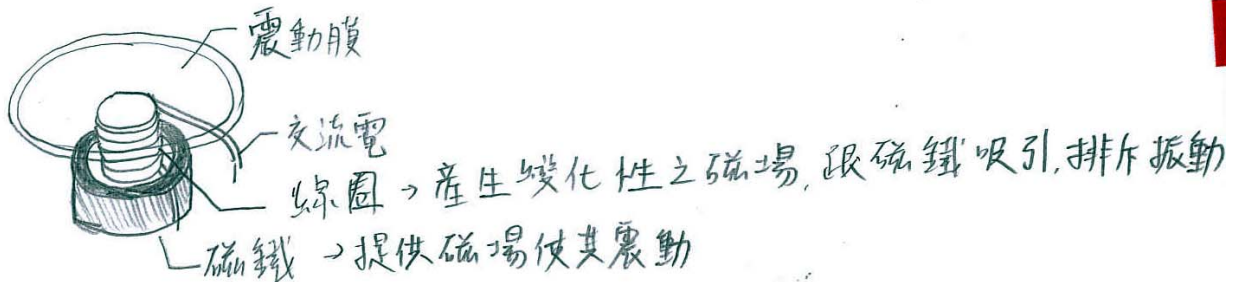 震動膜
交流電
線圈→產生變化性之磁場,跟磁鐵吸引,排斥振動
磁鐵→提供磁場使其震動